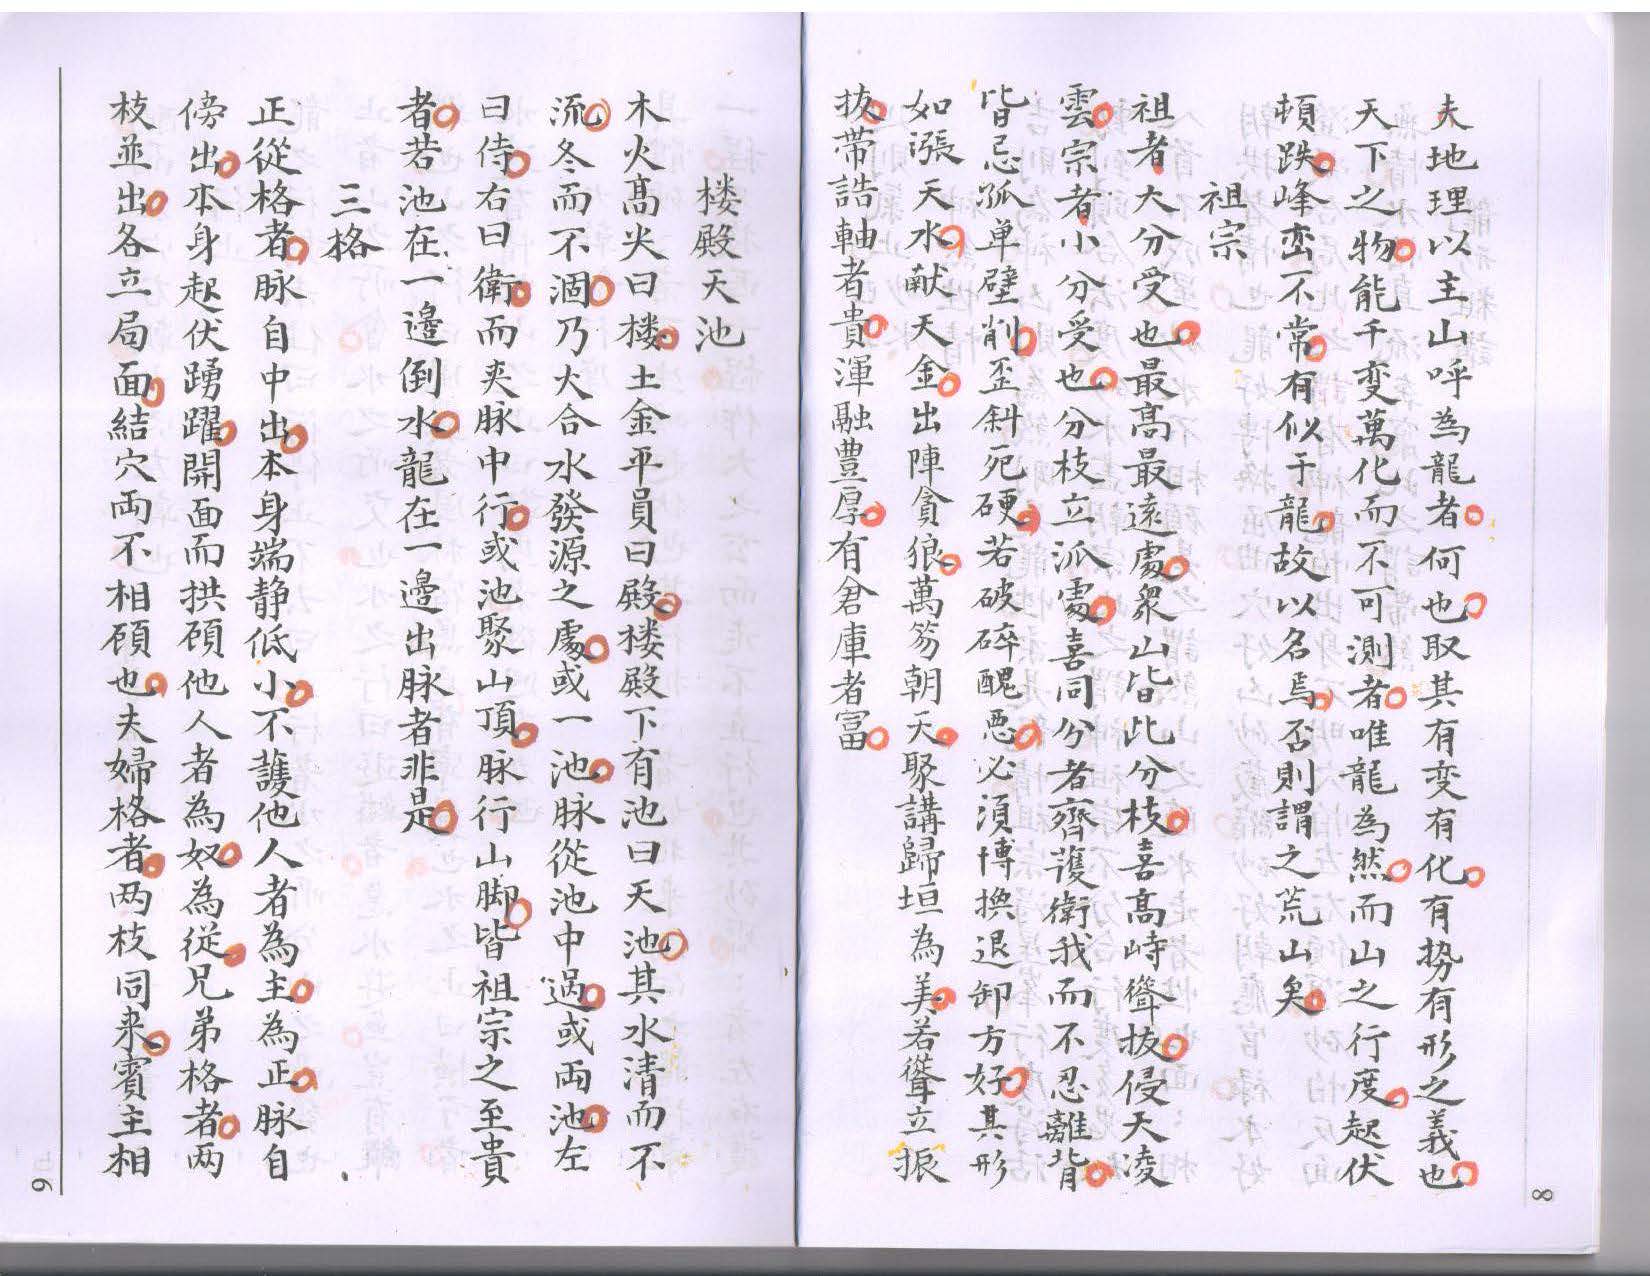 夫地理以主山呼為龍者何也取其有变有化有势有形之義也
天下之物能千变萬化而不可測者唯龍為然而山之行度起伏
頓跌峰峦不常有似于龍故以名焉否則謂之荒山矣
祖宗
祖者大分受也最高最遠處衆山皆此分枝喜高峙聳拔侵天凌
雲宗者小分受也分枝立派處喜同分者齊護衛我而不忍離背
皆忌孤单壁削歪斜死硬若破碎醜惡必湏博換退卸方好其形
如漲天水献天金出陣貪狼萬笏朝天聚講歸垣為美若聳立振
拔帶誥軸者貴渾融豊厚有倉庫者富
8
楼殿天池
木火高尖曰楼土金平員曰殿楼殿下有池曰天池其水清而不
流冬而不涸乃大合水發源之處或一池脉從池中過或両池左
曰侍右曰衛而夹脉中行或池聚山頂脉行山脚皆祖宗之至貴
者若池在一邉倒水龍在一邉出脉者非是
三格
正從格者脉自中出本身端静低小不護他人者為主為正脉自
傍出本身起伏踴躍開面而拱顾他人者為奴為從兄弟格者两
枝並出各立局面結穴両不相顾也夫婦格者两枝同来賓主相
9